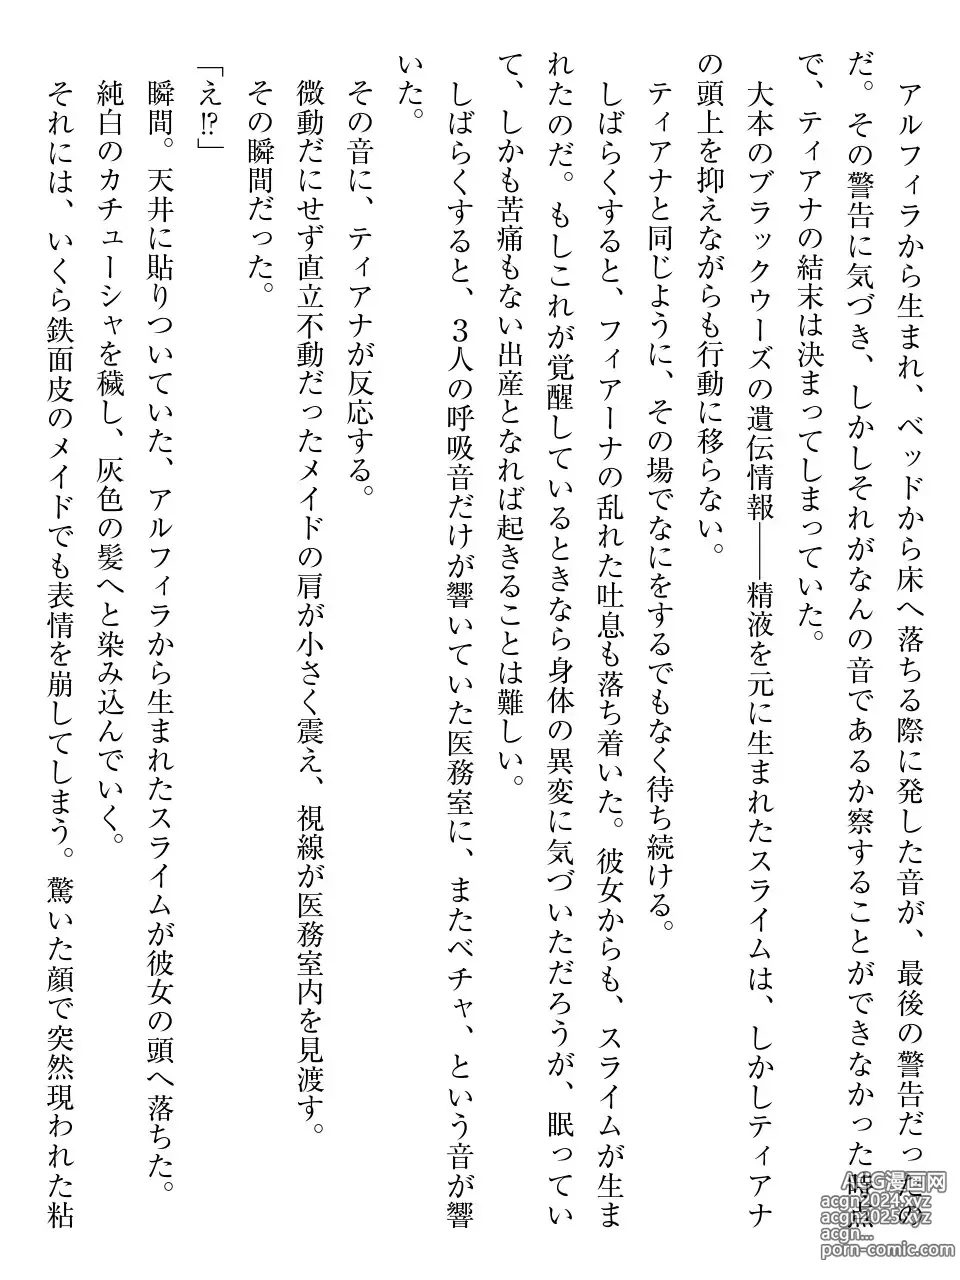 アルフィラから生まれ、ベッドから床へ落ちる際に発した音が、最後の警告だったの
だ。その警告に気づき、しかしそれがなんの音であるか察することができなかった時点
で、ティアナの結末は決まってしまっていた。
大本のブラックウーズの遺伝情報――精液を元に生まれたスライムは、しかしティアナ
の頭上を抑えながらも行動に移らない。
ティアナと同じように、その場でなにをするでもなく待ち続ける。
しばらくすると、フィアーナの乱れた吐息も落ち着いた。彼女からも、スライムが生ま
れたのだ。もしこれが覚醒しているときなら身体の異変に気づいただろうが、眠ってい
て、しかも苦痛もない出産となれば起きることは難しい。
しばらくすると、３人の呼吸音だけが響いていた医務室に、またベチャ、という音が響
いた。
その音に、ティアナが反応する。
微動だにせず直立不動だったメイドの肩が小さく震え、視線が医務室内を見渡す。
その瞬間だった。
「え!?」
瞬間。天井に貼りついていた、アルフィラから生まれたスライムが彼女の頭へ落ちた。
純白のカチューシャを穢し、灰色の髪へと染み込んでいく。
それには、いくら鉄面皮のメイドでも表情を崩してしまう。驚いた顔で突然現われた粘
ACG漫画网
acgn2024.xyz
acgn2025.xyz
acgn...
porn-comic.com